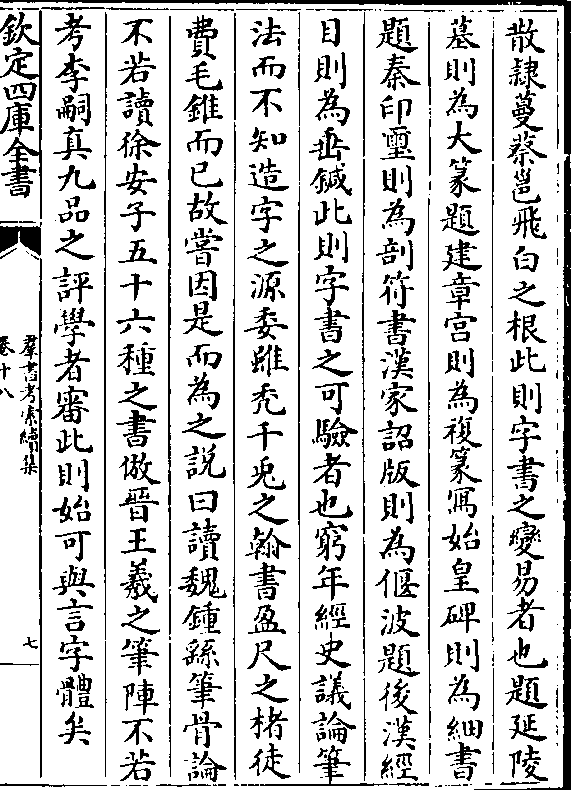 散隸蔓蔡邕飛白之根此則字書之變易者也題延陵
墓則為大篆題建章宫則為複篆寫始皇碑則為細書
題秦印璽則為剖符書漢家詔版則為偃波題後漢經
目則為垂鍼此則字書之可驗者也窮年經史議論筆
法而不知造字之源委雖秃千兎之翰書盈尺之楮徒
費毛錐而已故嘗因是而為之説曰讀魏鍾繇筆骨論
不若讀徐安子五十六種之書倣晉王羲之筆陣不若
考李嗣真九品之評學者審此則始可與言字體矣
欽定四庫全書
羣書考索續集
卷十八
七